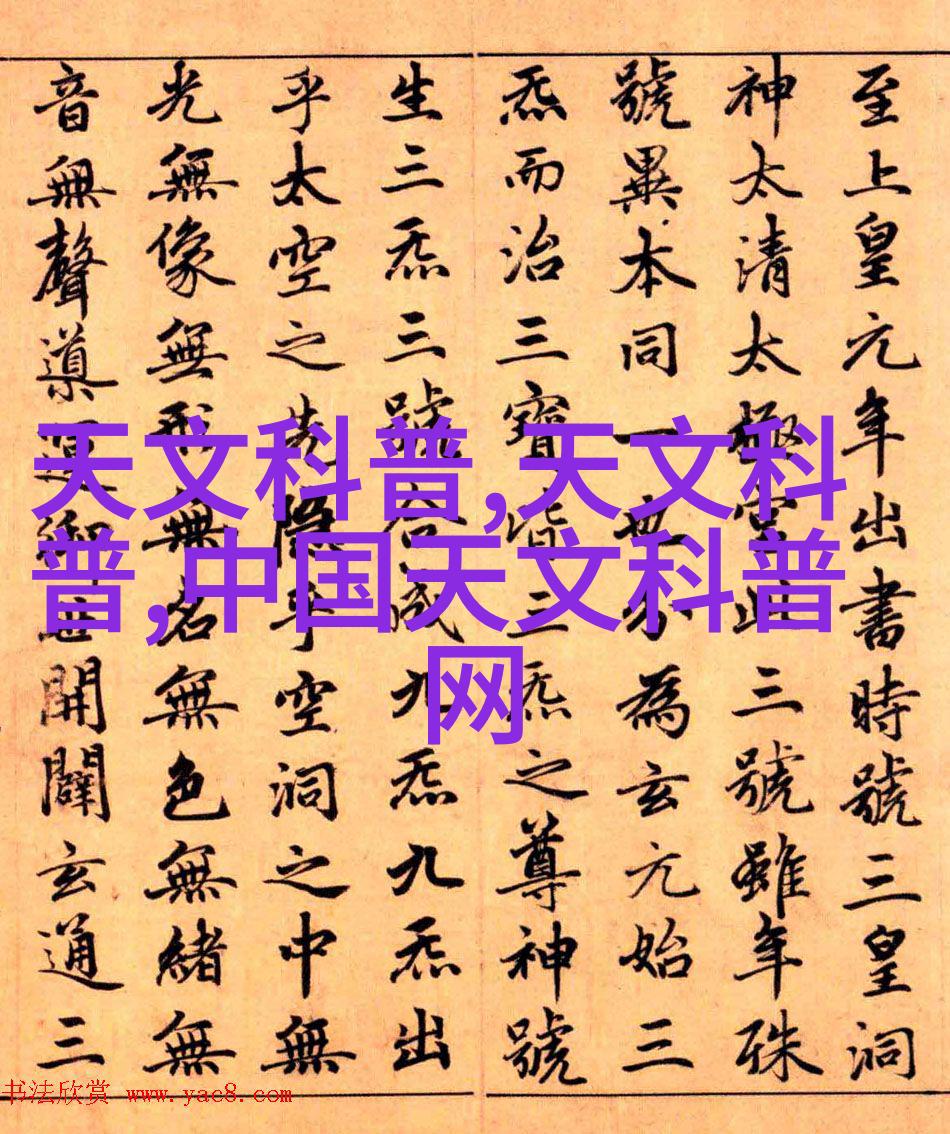 至上皇元年出書時號三皇洞
神太清太極宮此三號雖年殊
號異本同一分為玄元始三
炁而治三寶皆三炁之尊神號
生三炁三號合成九炁九炁出
乎太空之先隱乎空洞之中無
光無像無形無名無色無緒無
音無聲導運御世開闢玄通三
天文科普,天文科
普,中国天文科普
网
书法欣赏 www.yac8.com